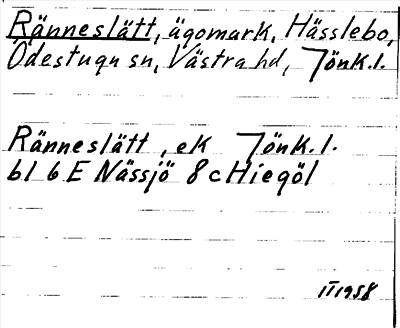 Ränneslätt, ägomark, Hässlebo,
Ödestugu sn, Västra hd, Jönk.l.
Ränneslätt, ek Jönk.l.
bl 6 E Nässjö 8 c Hiegöl
II 1958